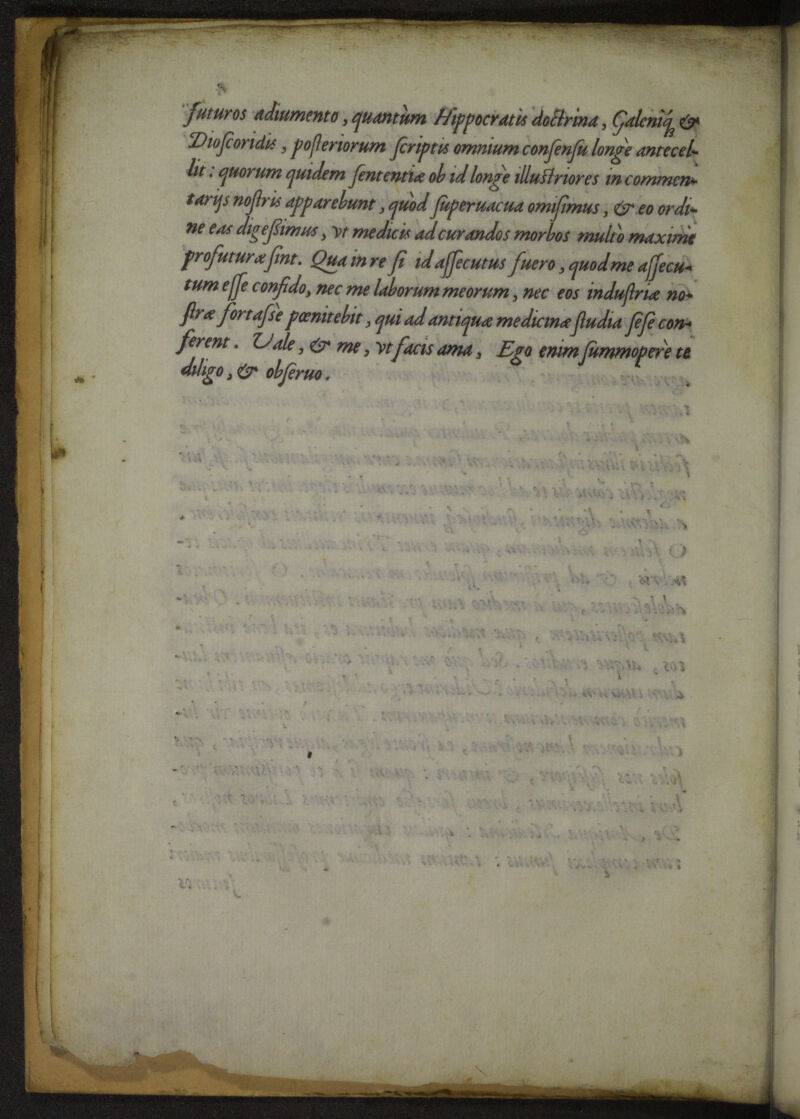 futuros adiumento, quantùm Hippocratis doctrina, Galeniq; &
Dioscoridis, posteriorum scriptis omnium consensu longè antecel-
lit: quorum quidem sententiæ ob id longè illustriores in commen-
tarijs nostris apparebunt, quòd superuacua omisimus, & eo ordi-
ne eas digessimus, vt medicis ad curandos morbos multò maximè
profuturæ sint. Qua in re si id assecutus fuero, quod me assecu-
tum esse confido, nec me laborum meorum, nec eos industriæ no-
stræ fortasse pœnitebit, qui ad antiquæ medicinæ studia sese con-
ferent. Vale, & me, vt facis ama, Ego enim summopere te
diligo, & obseruo.